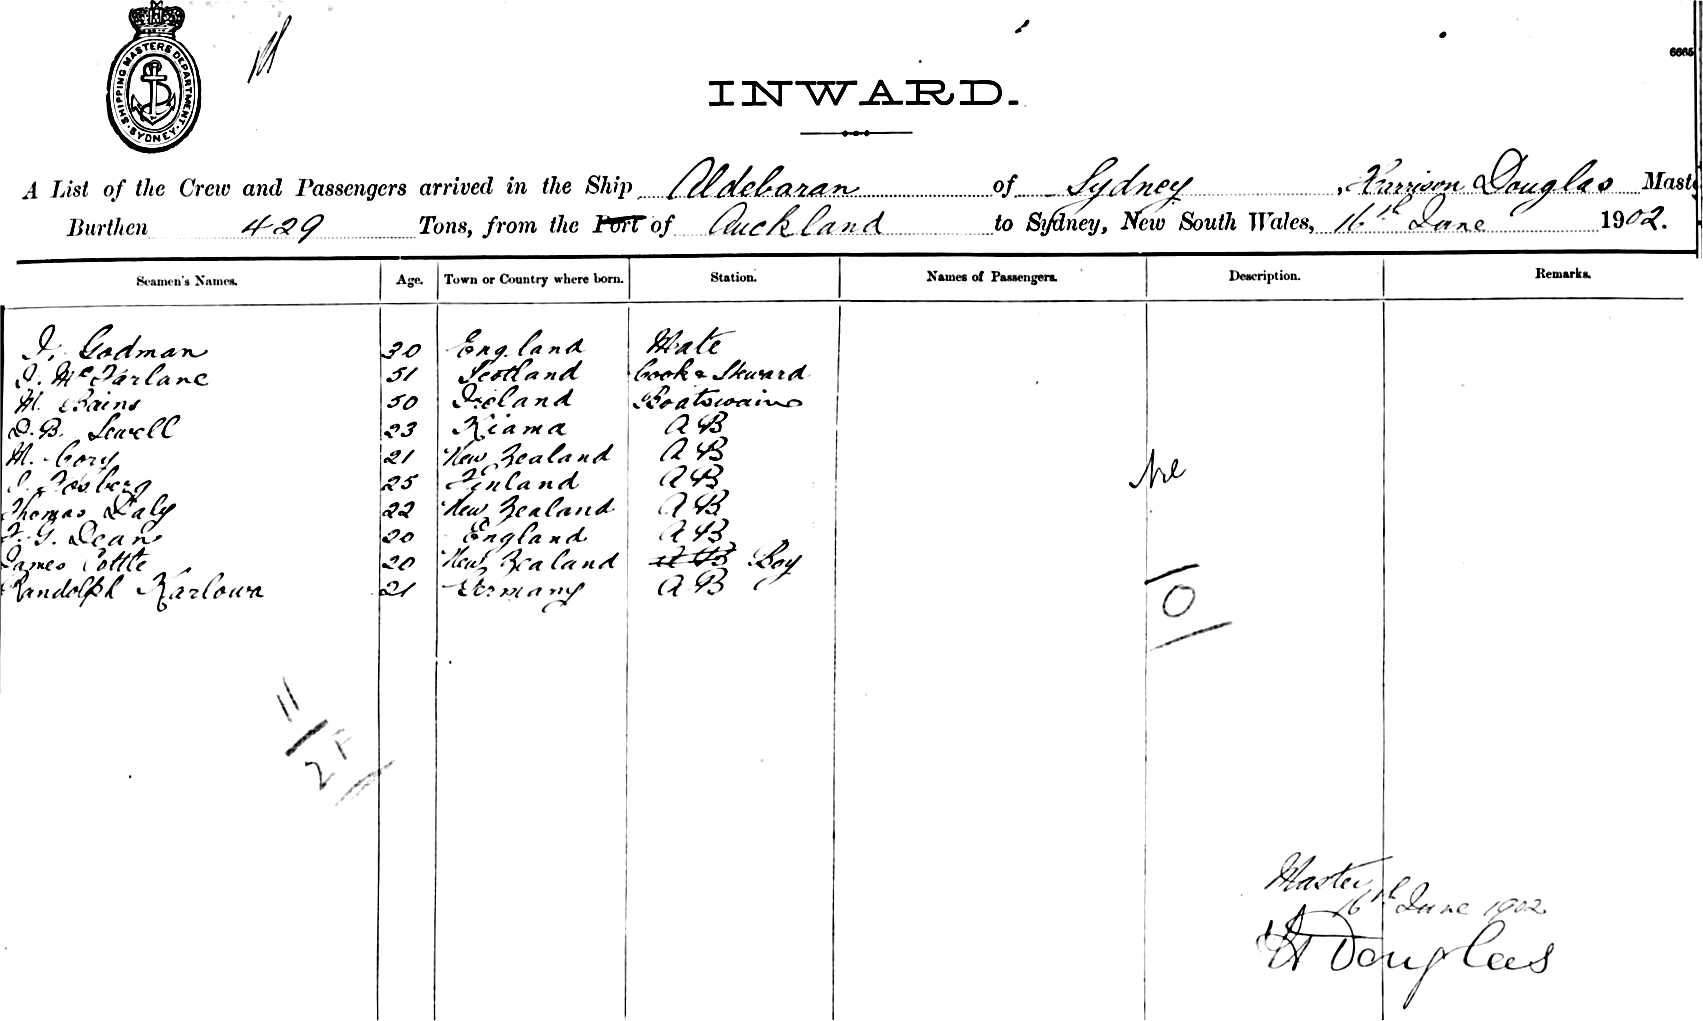 SHIPPING MASTERS DEPARTMENT
SYDNEY
6665
INWARD.
A List of the Crew and Passengers arrived in the Ship Aldebaran of Sydney, Harrison Douglas Maste
Burthen 429 Tons, from the Port of Auckland to Sydney, New South Wales, 16th June 1902.
Seamen's Names. Age. Town or Country where born. Station. Names of Passengers. Description. Remarks.
Godman 30 England Mate
McFarlane 51 Scotland Cook & Steward
M. Bains 50 Ireland Boatswain
D. B. Sewell 23 Kiama A B
M. Cory 21 New Zealand A B
Fosberg 25 Finland A B
Thomas Daly 22 New Zealand A B
G. Dean 20 England A B
James Cottle 20 New Zealand A B Boy
Randolph Karlowa 21 Germany A B
10
11
2
Master
16th June 1902
H Douglas